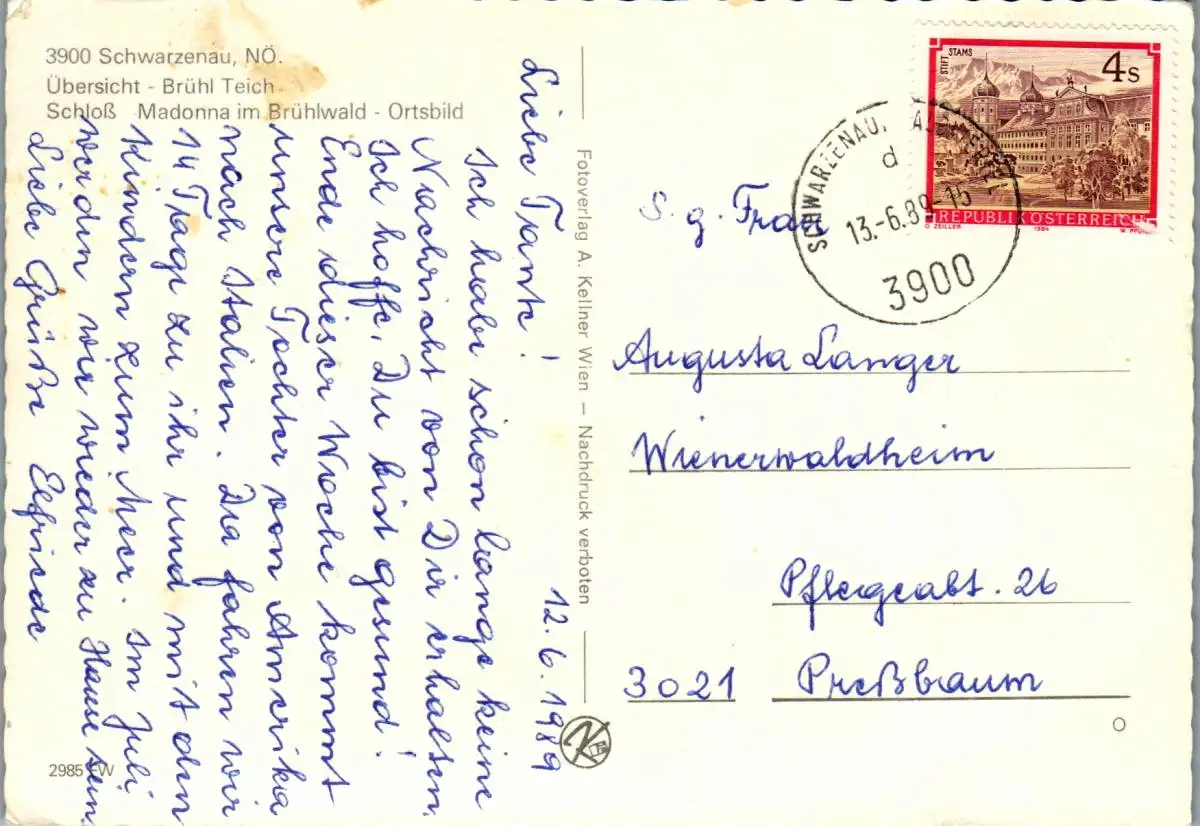 3900 Schwarzenau, NÖ.
Übersicht - Brühl Teich
Schloß Madonna im Brühlwald - Ortsbild
12.6.1989
Liebe Tante!
Ich habe schon lange keine
Nachricht von Dir erhalten.
Ich hoffe, Du bist gesund!
Ende dieser Woche kommt
unsere Tochter von Amerika
nach Italien. Da fahren wir
14 Tage zu ihr und mit den
Kindern zum Meer. Im Juli
werden wir wieder zu Hause sein
Liebe Grüße Elfriede
2985 W
Fotoverlag A. Kellner Wien — Nachdruck verboten
K
STIFT STAMS
4 S
REPUBLIK ÖSTERREICH
O. ZEILLER 1984
SCHWARZENAU,
d
13.-6.89-15
3900
S. g. Frau
Augusta Langer
Wienerwaldheim
Pflegeabt. 2b
3021 Preßbaum